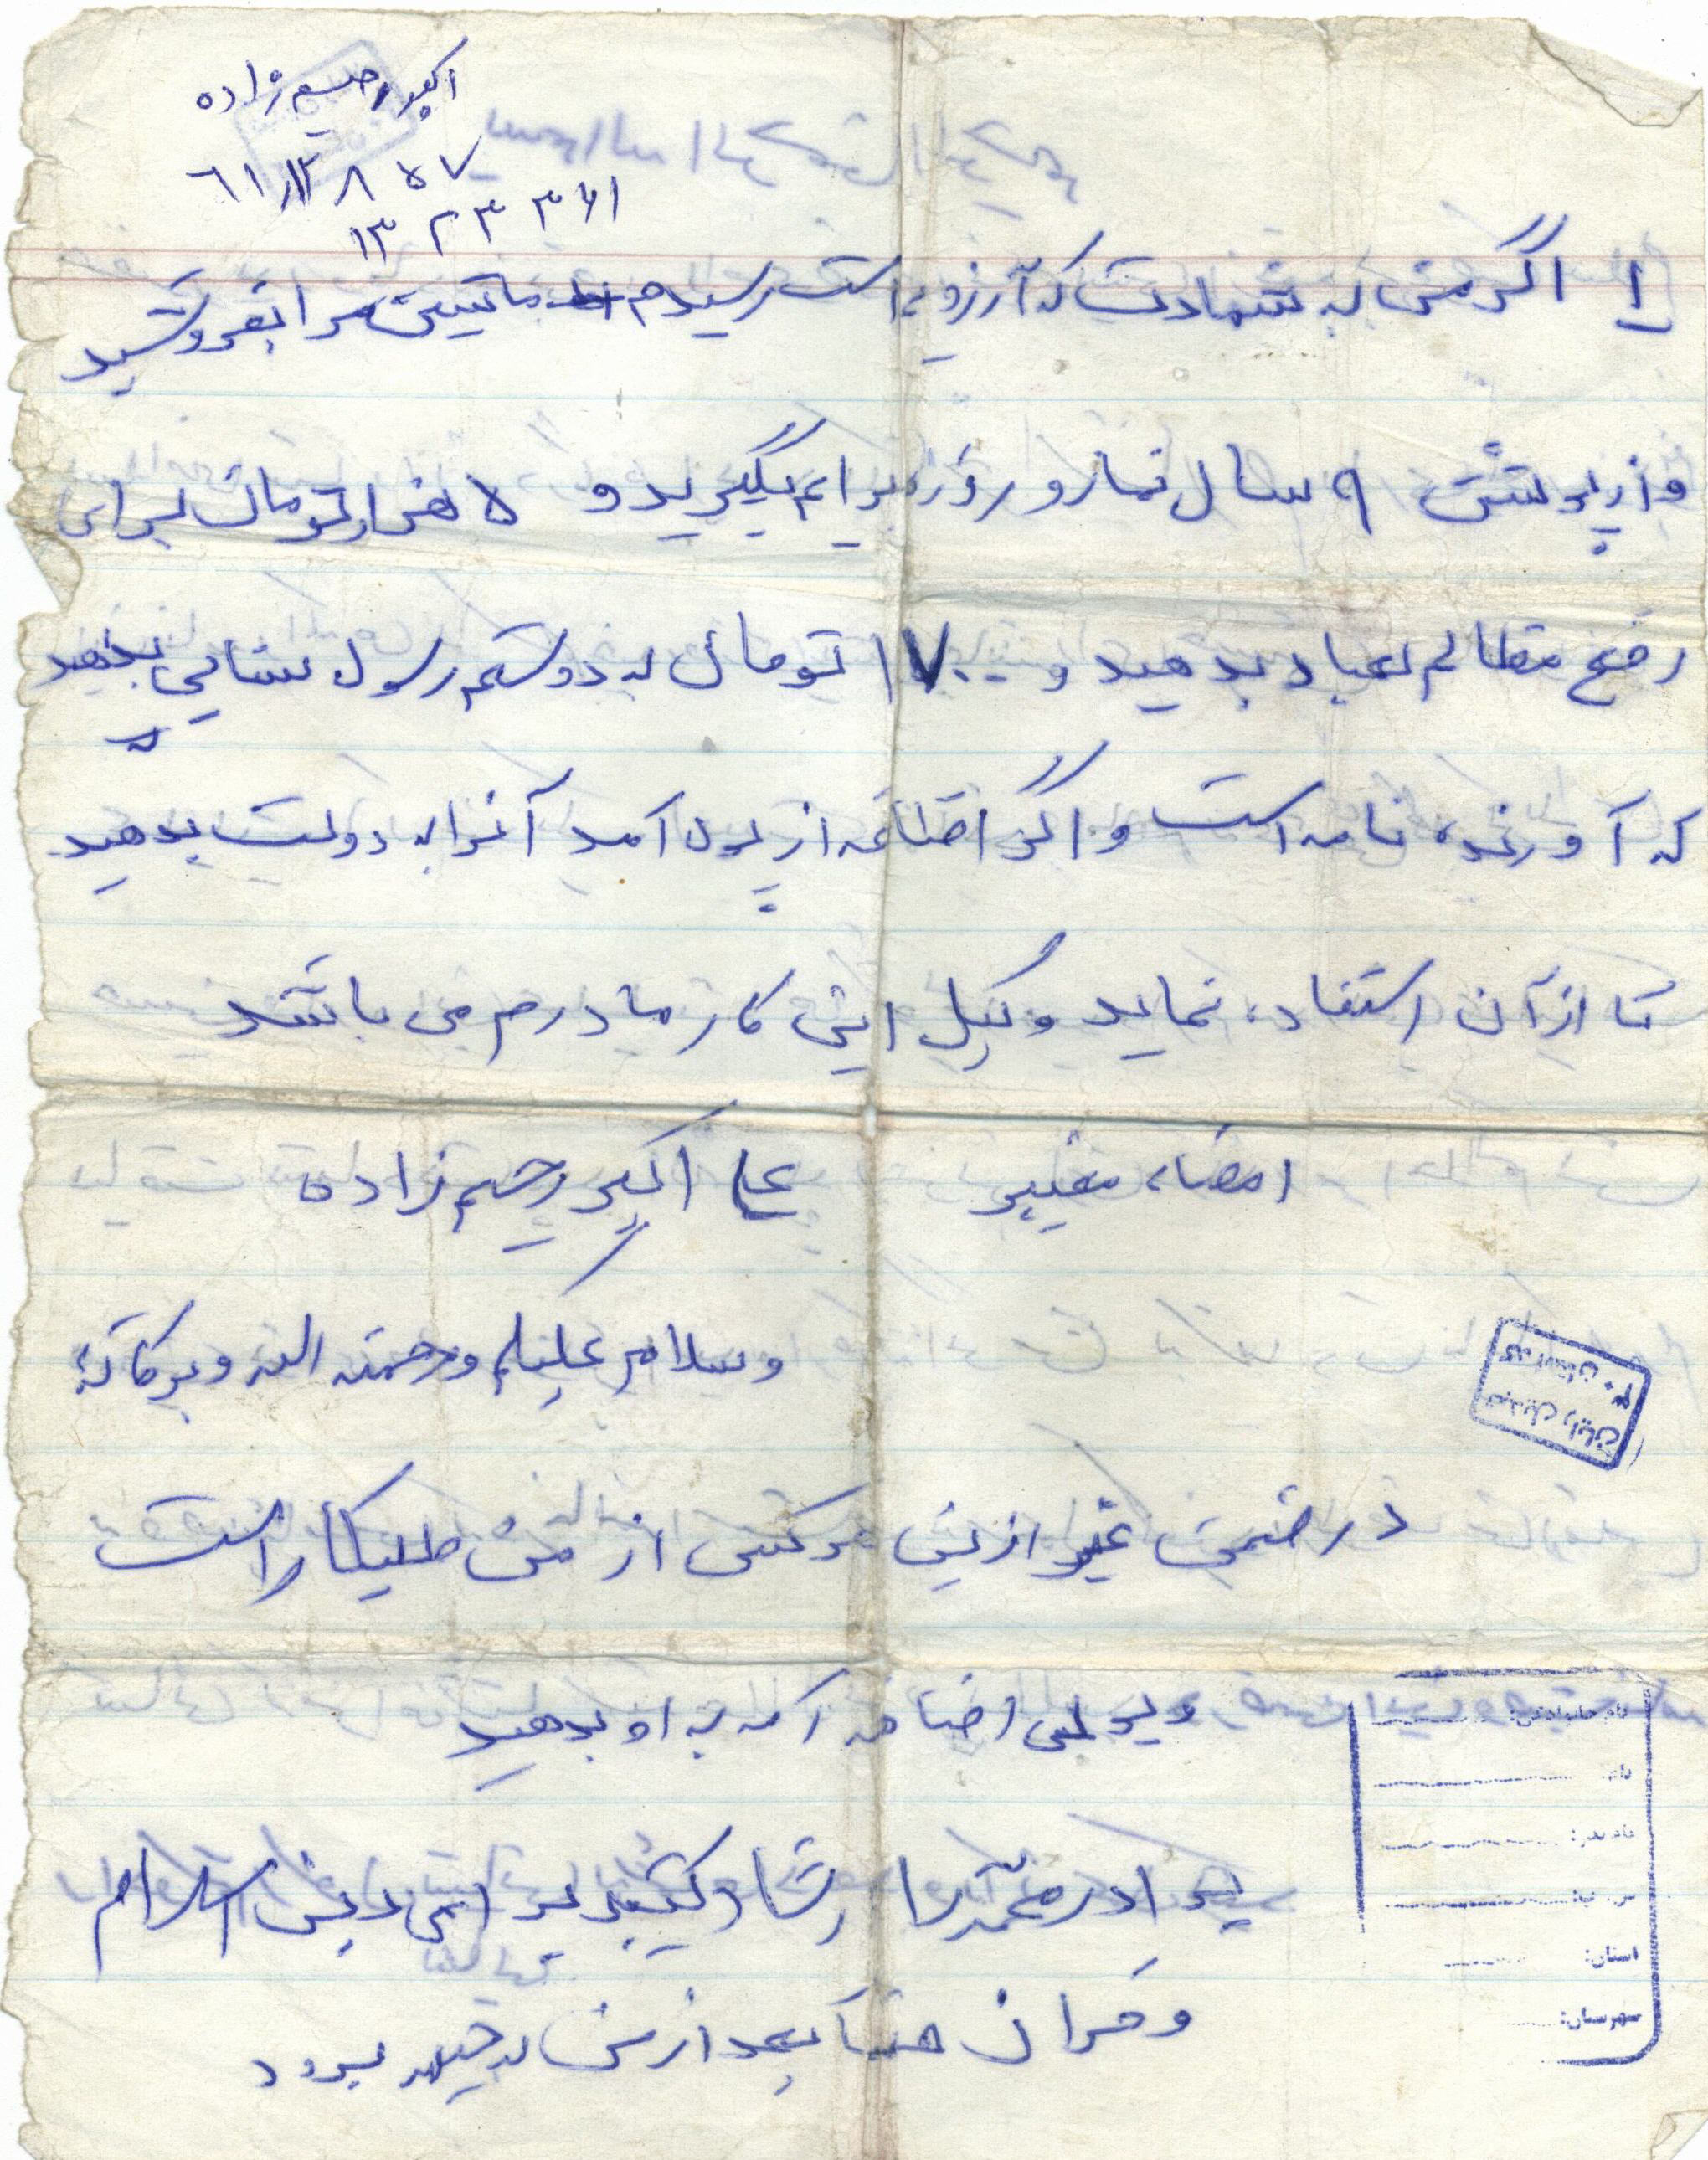 اکبر رحیم زاده
۶۱/۱۲/۸
۱۳۲۳۳۶۱
۱ اگر من به شهادت که آرزویم است رسیدم ماشین مرا بفروشید
و از پولش ۹ سال نماز و روزه برایم بگیرید و ۵ هزار تومان برای
رفع مظالم عباد بدهید و ۱۷۰۰ تومان به دوستم رسول بدهید
که آورنده نامه است و اگر اضافه از پول آمد آنرا به دولت بدهید
تا از آن استفاده نماید وکیل این کار مادرم می باشد
امضاء علی اکبر رحیم زاده
وسلام علیکم ورحمته الله وبرکاته
در ضمن غیر ازین هر کس از من طلبکار است
و پولی اضافه آمد به او بدهید
برادر محمد را ارشاد کنید برای دین اسلام
و قرآن حتما بعد از من به جبهه برود
کد استان ۳۰
نام خانوادگی:
نام:
نام پدر:
استان:
شهرستان: